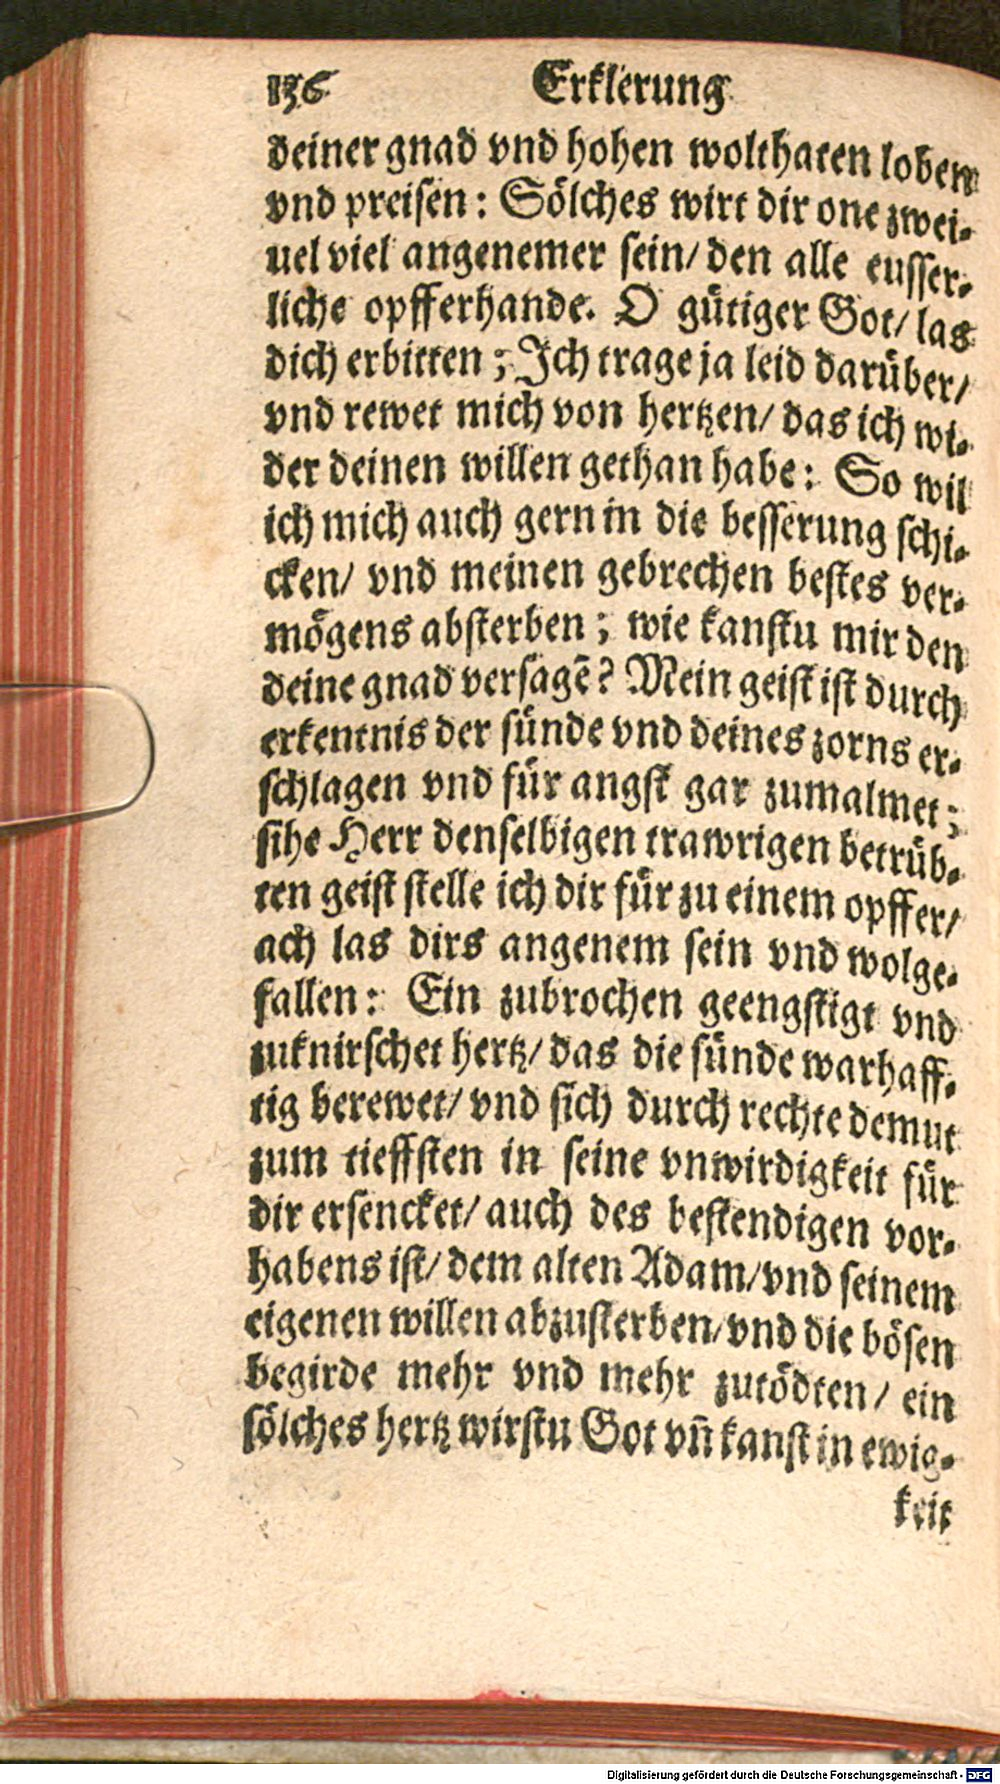 136 Erklerung
deiner gnad vnd hohen wolthaten loben
vnd preisen: Sölches wirt dir one zwei-
uel viel angenemer sein/ den alle eusser-
liche opfferhande. O gütiger Got/ las
dich erbitten; Ich trage ja leid darüber/
vnd rewet mich von hertzen/ das ich wi-
der deinen willen gethan habe: So wil
ich mich auch gern in die besserung schi-
cken/ vnd meinen gebrechen bestes ver-
mögens absterben; wie kanstu mir den
deine gnad versagē? Mein geist ist durch
erkentnis der sünde vnd deines zorns er-
schlagen vnd für angst gar zumalmet;
sihe Herr denselbigen trawrigen betrüb-
ten geist stelle ich dir für zu einem opffer/
ach las dirs angenem sein vnd wolge-
fallen: Ein zubrochen geengstigt vnd
zuknirschet hertz/ das die sünde warhaff-
tig berewet/ vnd sich durch rechte demut
zum tieffsten in seine vnwirdigkeit für
dir ersencket/ auch des bestendigen vor-
habens ist/ dem alten Adam/ vnd seinem
eigenen willen abzusterben/ vnd die bösen
begirde mehr vnd mehr zutödten/ ein
sölches hertz wirstu Got vn̄ kanst in ewig-
keit
Digitalisierung gefördert durch die Deutsche Forschungsgemeinschaft - DFG